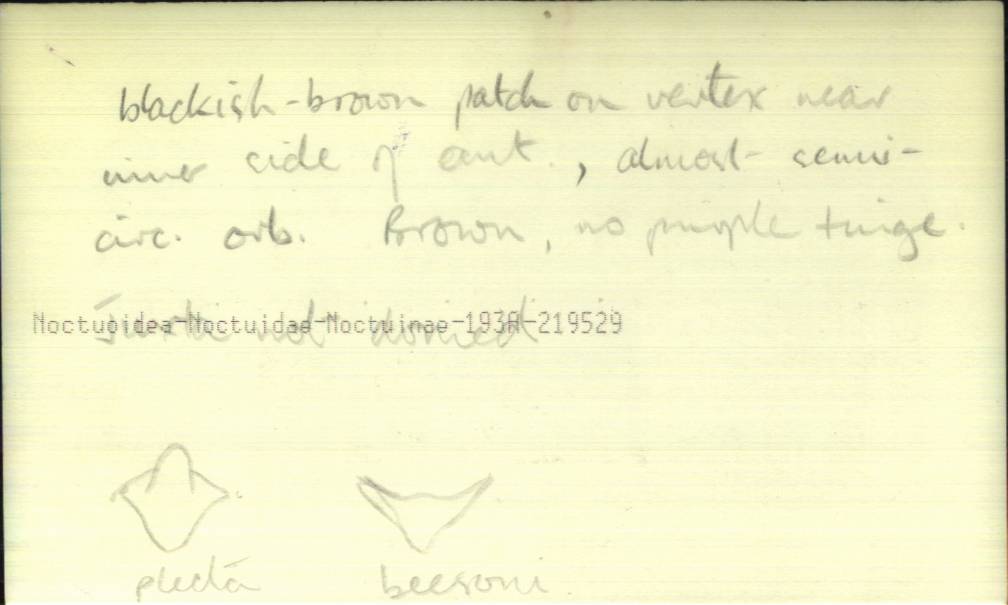 blackish-brown patch on vertex near
inner side of ant., almost semi-
circ. orb. Brown, no purple tinge.
Noctuoidea-Noctuidae-Noctuinae-193A-219529
not domed
plecta beesoni